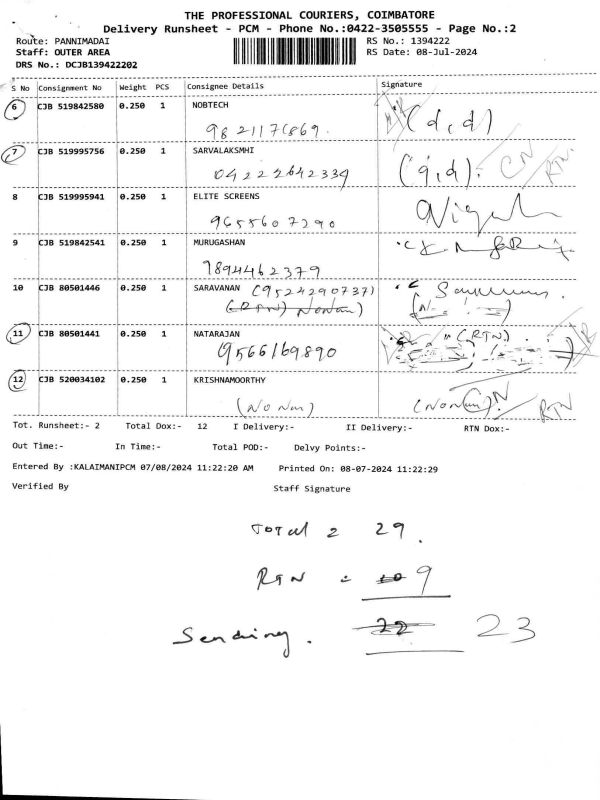 THE PROFESSIONAL COURIERS, COIMBATORE
Delivery Runsheet - PCM - Phone No.:0422-3505555 - Page No.:2
Route: PANNIMADAI
RS No.: 1394222
Staff: OUTER AREA
RS Date: 08-Jul-2024
DRS No.: DCJB139422202
S No Consignment No Weight PCS Consignee Details Signature
6 CJB 519842580 0.250 1 NOBTECH
(d,d)
7 CJB 519995756 0.250 1 SARVALAKSMHI
04222642339 (d,d). CN RTN
8 CJB 519995941 0.250 1 ELITE SCREENS
9655607290
9 CJB 519842541 0.250 1 MURUGASHAN
9894462379
10 CJB 80501446 0.250 1 SARAVANAN (9524290737)
11 CJB 80501441 0.250 1 NATARAJAN (RTN)
9566169890
12 CJB 520034102 0.250 1 KRISHNAMOORTHY
(No Num) RTN
Tot. Runsheet:- 2 Total Dox:- 12 I Delivery:- II Delivery:- RTN Dox:-
Out Time:- In Time:- Total POD:- Delvy Points:-
Entered By :KALAIMANIPCM 07/08/2024 11:22:20 AM Printed On: 08-07-2024 11:22:29
Verified By Staff Signature
Total = 29.
RTN = 9
Sending. 22 23